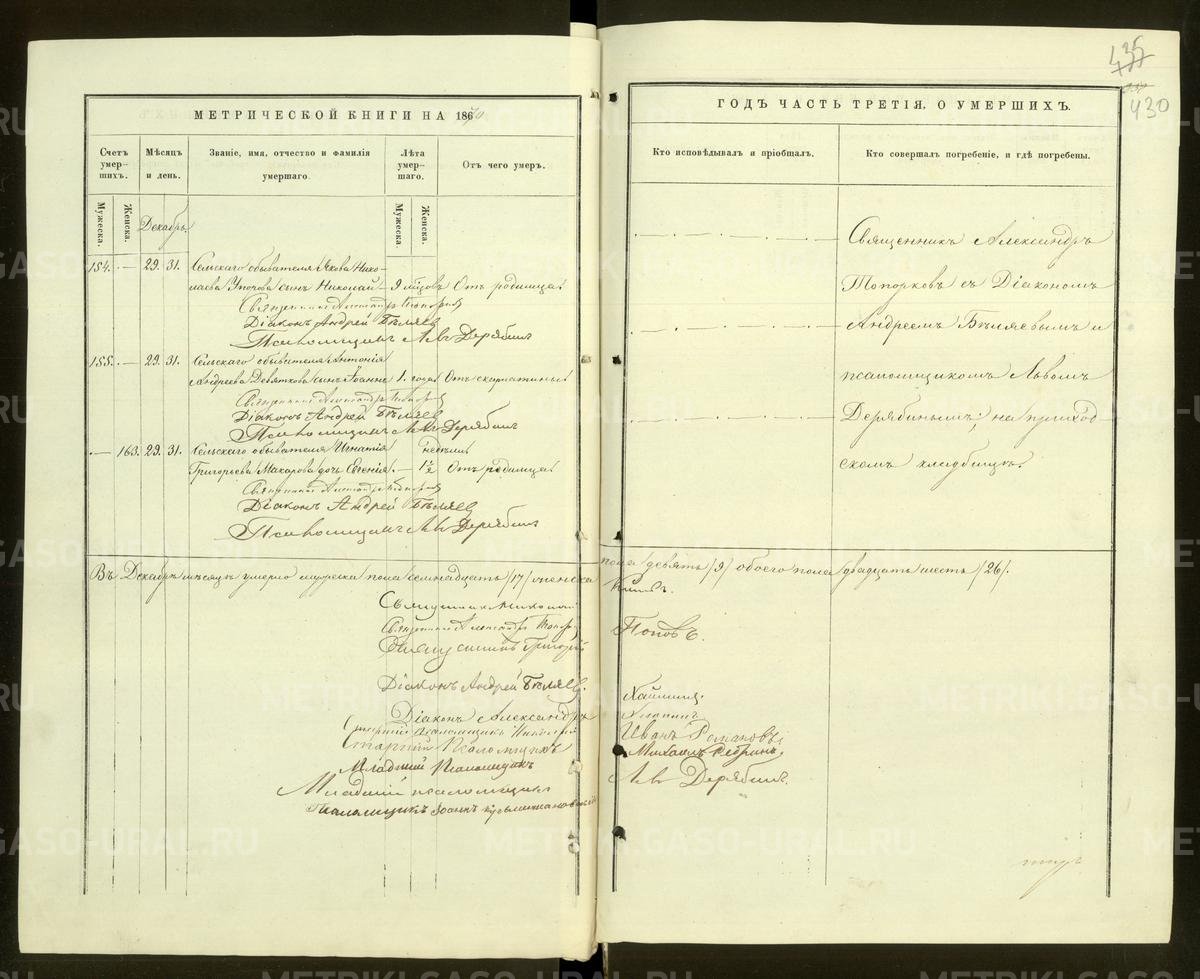 435
430
МЕТРИЧЕСКОЙ КНИГИ НА 1870
ГОДЪ ЧАСТЬ ТРЕТІЯ, О УМЕРШИХЪ.
Счетъ умер-шихъ.
Мѣсяцъ и день.
Званіе, имя, отчество и фамилія умершаго.
Лѣта умер-шаго.
Отъ чего умеръ.
Кто исповѣдывалъ и пріобщалъ.
Кто совершалъ погребеніе, и гдѣ погребены.
Мужеска.
Женска.
Мужеска.
Женска.
Декабрь.
154. — 29. 31. Сельскаго обывателя Якова Нико-
лаева сынъ Николай — 9 мѣсяцовъ Отъ родимца
Священникъ Александръ Топорковъ
Діаконъ Андрей Бѣляевъ
Псаломщикъ Левъ Дерябинъ
155. — 29. 31. Сельскаго обывателя Антонія
Андреева Девяткова сынъ Іоаннъ 1. года Отъ скарлатины
Священникъ Александръ Топорковъ
Діаконъ Андрей Бѣляевъ
Псаломщикъ Левъ Дерябинъ
— 163. 29. 31. Сельскаго обывателя Игнатія недѣли
Григорьева Макарова дочь Евгенія. — 1½ Отъ родимца
Священникъ Александръ Топорковъ
Діаконъ Андрей Бѣляевъ
Псаломщикъ Левъ Дерябинъ
Священникъ Александръ
Топорковъ съ Діакономъ
Андреемъ Бѣляевымъ и
псаломщикомъ Львомъ
Дерябинымъ; на приход-
скомъ кладбищѣ.
Въ Декабрѣ мѣсяцѣ умерло мужеска пола семнадцать /17/ женска пола девять /9/ обоего пола двадцать шесть /26/.
Священникъ Николай
Священникъ Александръ Топорковъ
Священникъ Григорій Поповъ.
Діаконъ Андрей Бѣляевъ.
Діаконъ Александръ
Старшій псаломщикъ Николай
Старшій Псаломщикъ Иванъ Романовъ
Младшій Псаломщикъ Михаилъ Ребринъ.
Младшій псаломщикъ Левъ Дерябинъ.
Псаломщикъ Іоаннъ
METRIKI.GASO-URAL.RU